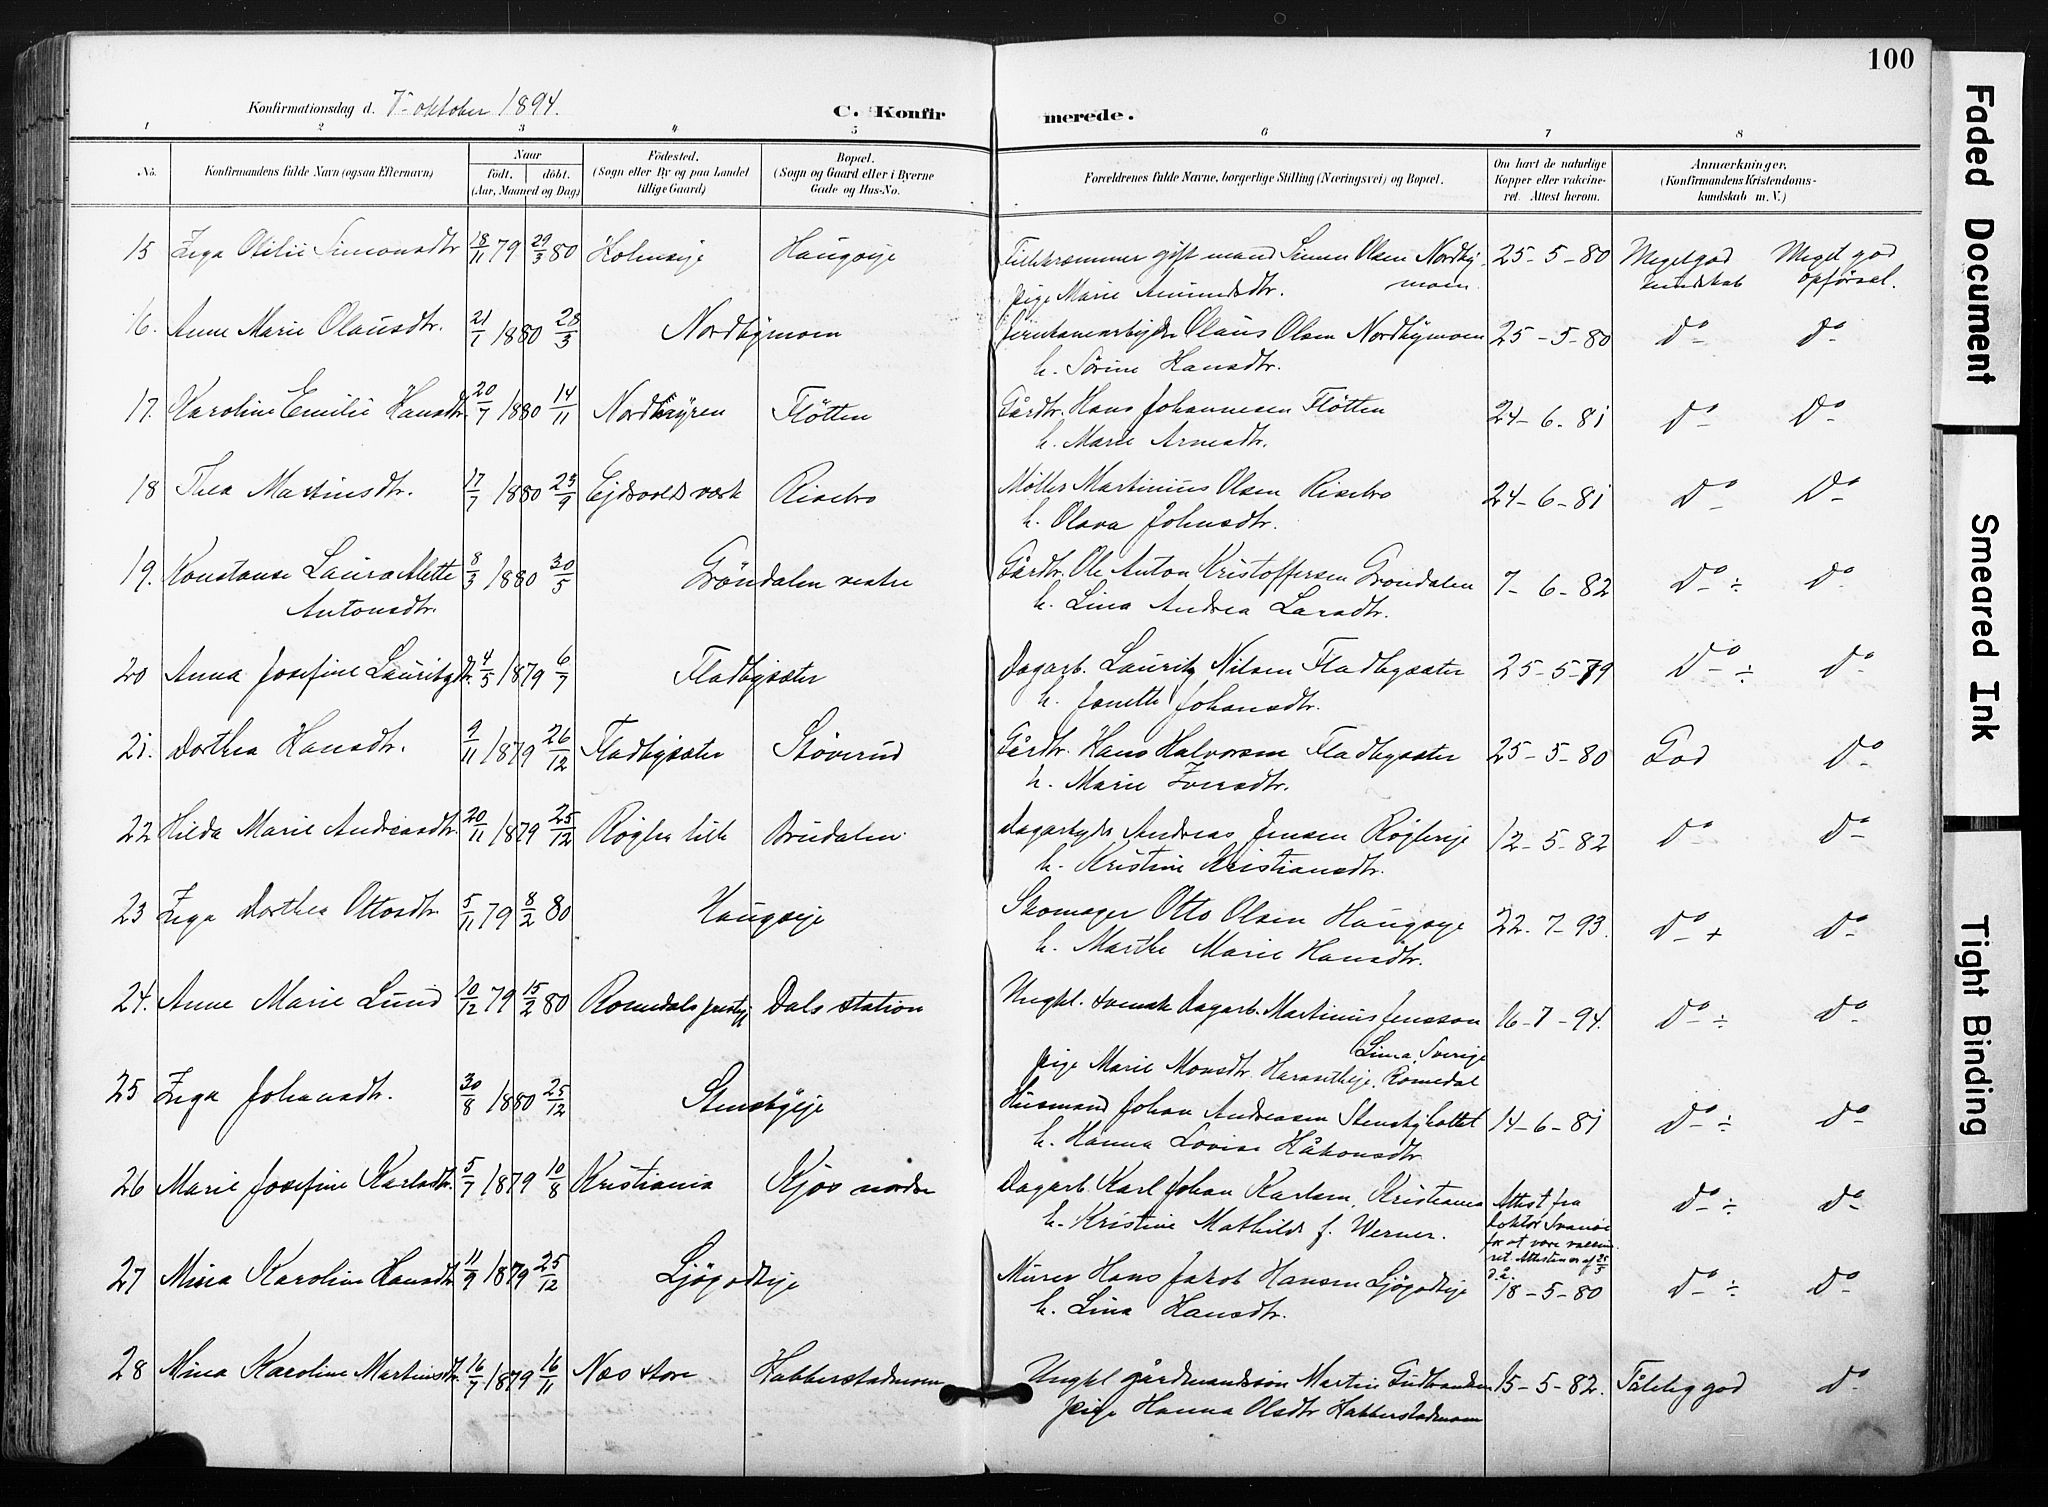 100
Konfirmationsdag d. 7 oktober 1894.
C. Konfirmerede.
1 2 3 4 5 6 7 8
No. Konfirmandens fulde Navn (ogsaa Efternavn) Naar født. døbt. (Aar, Maaned og Dag) Fødested. (Sogn eller By og paa Landet tillige Gaard) Bopæl. (Sogn og Gaard eller i Byerne Gade og Hus-No. Forældrenes fulde Navne, borgerlige Stilling (Næringsvei) og Bopæl. Om havt de naturlige Kopper eller vakcineret. Attest herom. Anmærkninger. (Konfirmandens Kristendomskundskab m. V.)
15 Inga Otilie Simonsdtr 18/11 79 29/3 80 Holmseje Haugseje gift mand Simen Olsen Nordbymoen 25-5-80 Meget god kundskab Meget god opførsel.
pige Marie Amundsdtr.
16. Anne Marie Olausdtr. 21/1 1880 28/3 Nordbymoen Jernbanearbejder Olaus Olsen Nordbymoen 25-5-80 Do Do
h. Sørine Hansdtr.
17. Karoline Emilie Hansdtr. 20/7 1880 14/11 Fløtten Gårdbr. Hans Johannesen Fløtten 24-6-81 Do Do
h. Marie Arnesdtr.
18 Thea Martinsdtr. 17/7 1880 25/9 Ejdsvolds værk Risebro Møller Martinius Olsen Risebro 24-6-81 Do Do
h. Olava Johnsdtr.
19. Konstanse Laura Alette 8/3 1880 30/5 Grøndalen vestre Gårdbr. Ole Anton Kristoffersen Grøndalen 7-6-82 Do ÷ Do
Antonsdtr. h. Lina Andrea Larsdtr.
20 Anna Josefine Lauritzdtr. 4/5 1879 6/7 Fladbysæter Dagarb. Lauritz Nilsen Fladbysæter 25-5-79 Do ÷ Do
h. Janette Johansdtr.
21. Dorthea Hansdtr. 9/11 1879 26/12 Fladbysæter Støverud Gårdbr. Hans Halvorsen Fladbysæter 25-5-80 God Do
h. Marie Iversdtr.
22 Hilda Marie Andreasdtr. 20/11 1879 25/12 Røgler lille Brudalen Dagarbejder Andreas Jensen Røglereje 12-5-82 Do Do
h. Kristine Kristiansdtr.
23 Inga Dorthea Ottosdtr. 5/11 79 8/2 80 Haugseje Skomager Otto Olsen Haugseje 22-7-93. Do + Do
h. Marthe Marie Hansdtr.
24. Anne Marie Lund 10/12 79 15/2 80 Romedals prestgj Dals station Ungkl. svensk Dagarb. Martinus Jensson 16-7-94. Do ÷ Do
Lima, Sverige
pige Marie Monsdtr. Romedal
25 Inga Johansdtr. 30/8 1880 25/12 Stensbyeje Husmand Johan Andreasen 14-6-81 Do ÷ Do
h. Hanna Lovise Håkonsdtr.
26 Marie Josefine Karlsdtr. 5/7 1879 10/8 Kristiania Kjos nordre Dagarb. Karl Johan Karlsen, Kristiania Attest fra doktor for at være vaccineret. Attesten er af 25/5 d.å. Do ÷ Do
h. Kristine Mathilde f. Werner.
27 Mina Karoline Hansdtr 11/9 1879 25/12 Ljøgodteje Murer Hans Jakob Hansen Ljøgodteje 18-5-80 Do ÷ Do
h. Lina Hansdtr.
28 Mina Karoline Martinsdtr. 16/7 1879 16/11 Næs store Habberstadmoen Ungkl gårdmandssøn Martin Gudbrandsen 15-5-82. Tålelig god Do
pige Hanna Olsdtr Habberstadmoen
Faded Document
Smeared Ink
Tight Binding